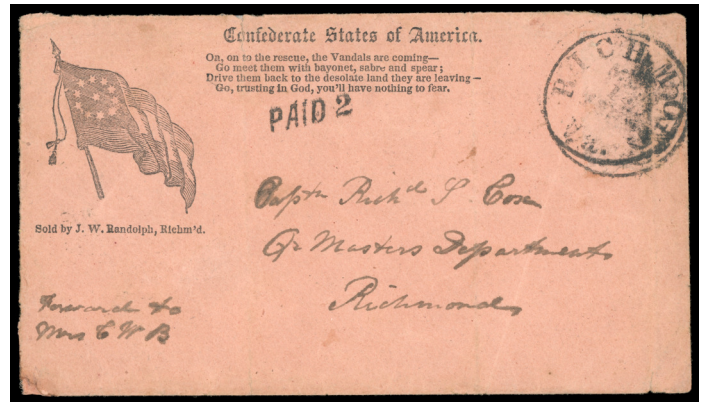 Confederate States of America.
On, on to the rescue, the Vandals are coming—
Go meet them with bayonet, sabre and spear;
Drive them back to the desolate land they are leaving—
Go, trusting in God, you'll have nothing to fear.
PAID 2
RICHMOND
VA.
Sold by J. W. Randolph, Richm'd.
Captn Richd S. Cox
Qr Masters Department
Richmond
Forward to
Mrs C W B